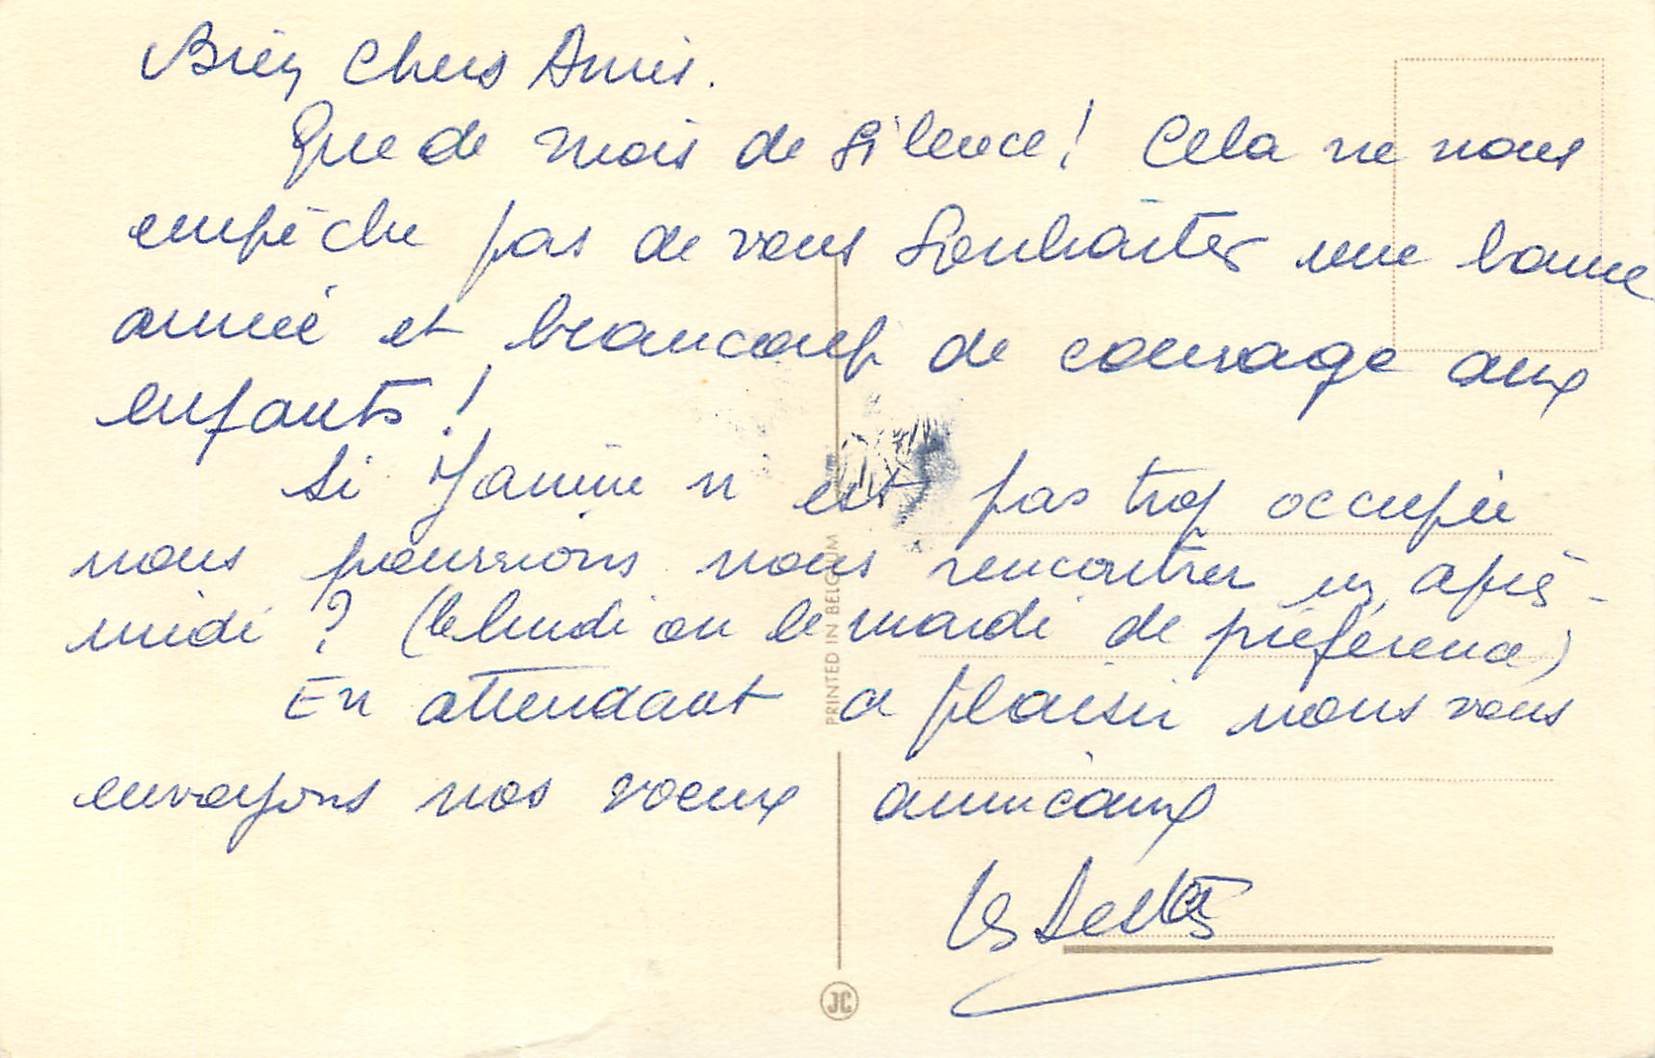 Bien Chers Amis.
Que de mois de silence ! Cela ne nous
empêche pas de vous souhaiter une bonne
année et beaucoup de courage aux
enfants !
Si Janine n'est pas trop occupée
nous pourrions nous rencontrer un après-
midi ? (le lundi ou le mardi de préférence)
En attendant ce plaisir nous vous
envoyons nos voeux amicaux
Les
PRINTED IN BELGIUM
JC